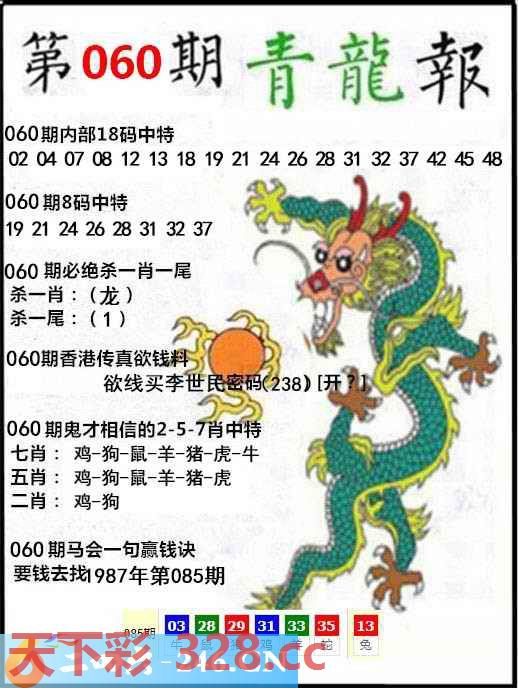 第060期青龍報
060期内部18码中特
02 04 07 08 12 13 18 19 21 24 26 28 31 32 37 42 45 48
060期8码中特
19 21 24 26 28 31 32 37
060期必绝杀一肖一尾
杀一肖：（龙）
杀一尾：（1）
060期香港传真欲钱料
欲线买李世民密码(238)[开?]
060期鬼才相信的2-5-7肖中特
七肖： 鸡-狗-鼠-羊-猪-虎-牛
五肖： 鸡-狗-鼠-羊-猪-虎
二肖： 鸡-狗
060期马会一句赢钱诀
要钱去找1987年第085期
085期 03 28 29 31 33 35 13
牛 鼠 鸡 羊 蛇 兔
天下彩-328.cc